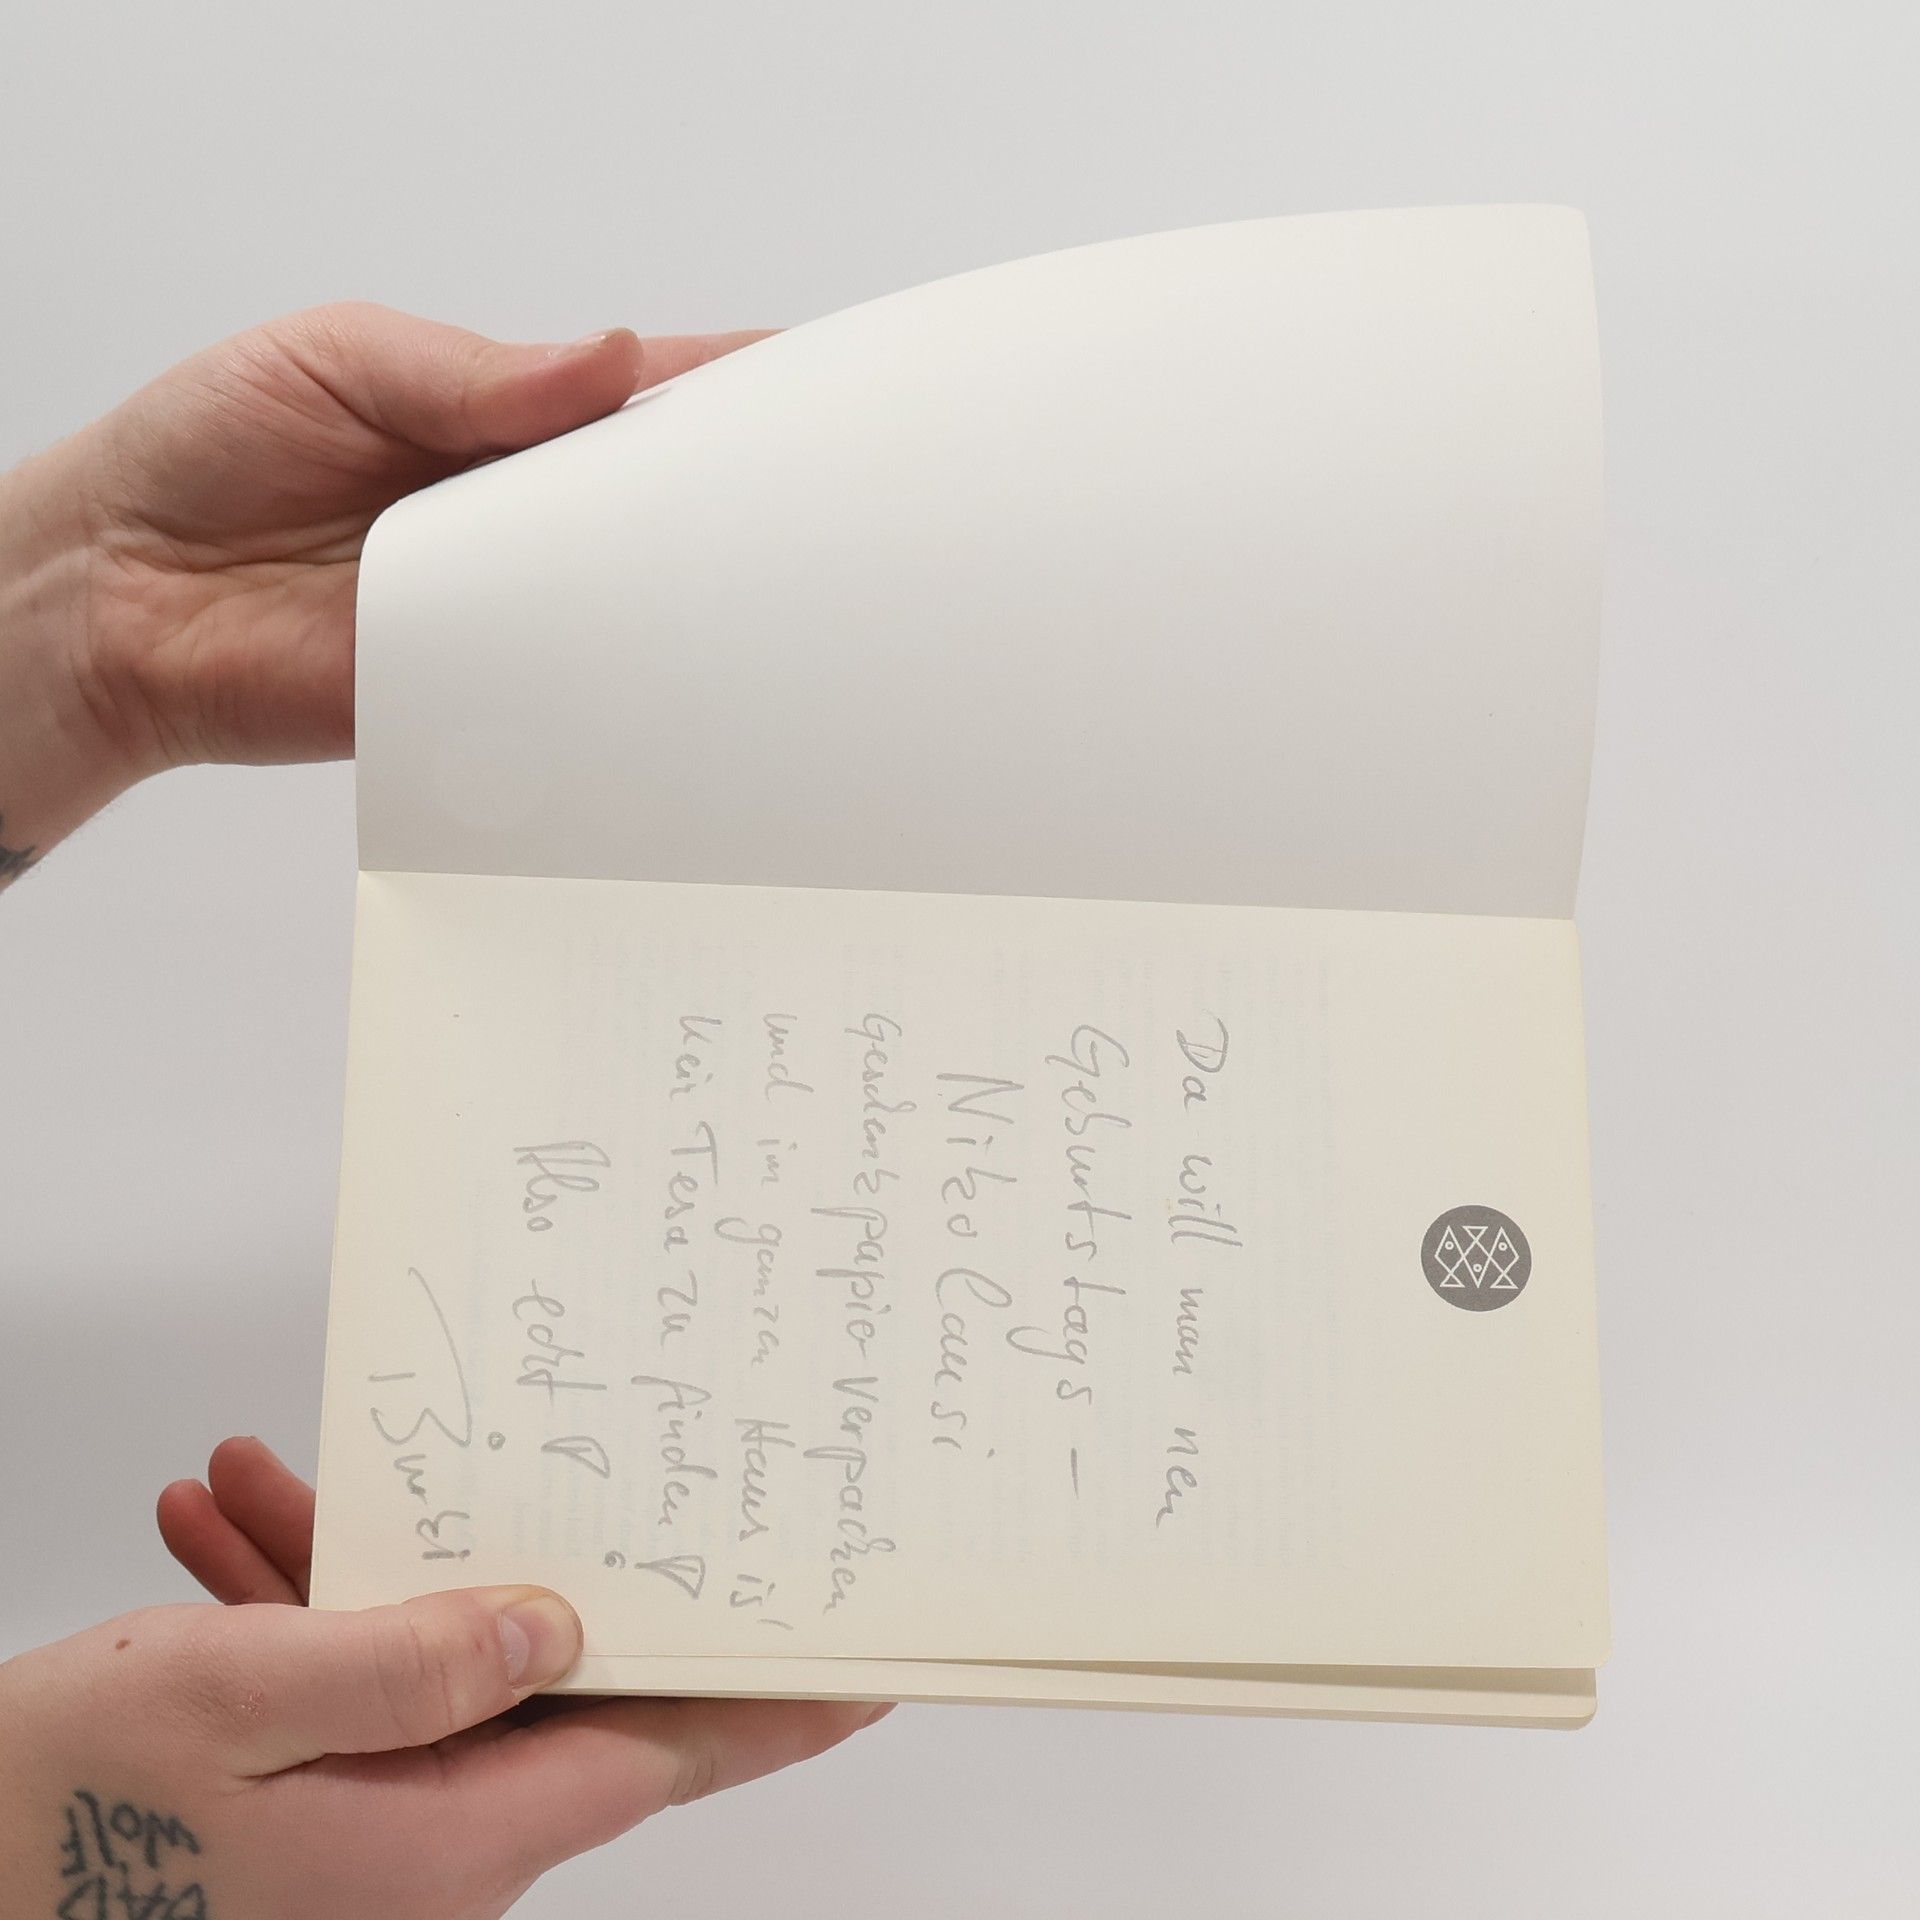 Da will man nen
Geburtstags –
Nikolausi
Geschenkpapier verpacken
und im ganzen Haus is'
kein Tesa zu finden!
Also echt!